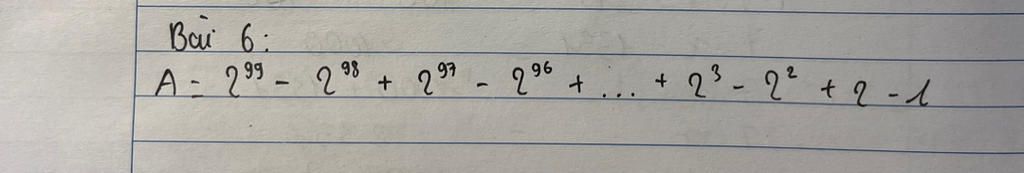 Bài 6:
A = 2⁹⁹ - 2⁹⁸ + 2⁹⁷ - 2⁹⁶ + ... + 2³ - 2² + 2 - 1